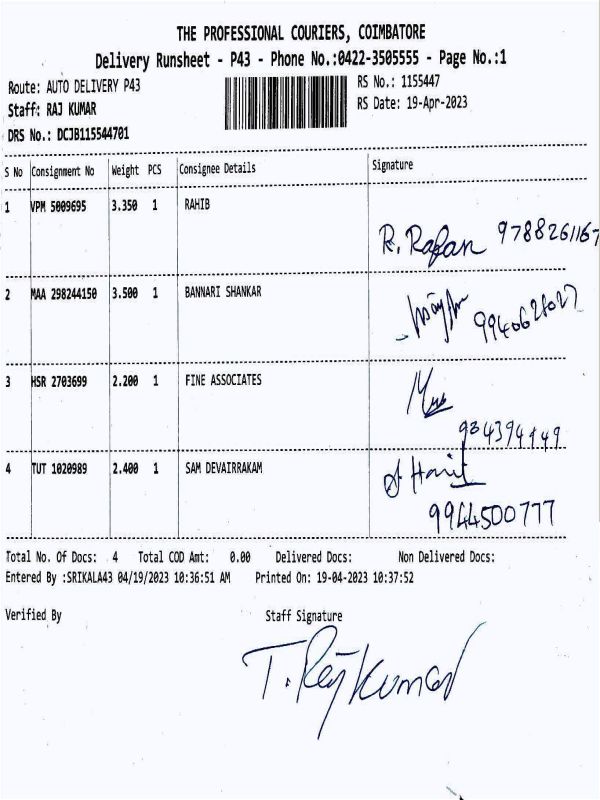 THE PROFESSIONAL COURIERS, COIMBATORE
Delivery Runsheet - P43 - Phone No.:0422-3505555 - Page No.:1
Route: AUTO DELIVERY P43
RS No.: 1155447
Staff: RAJ KUMAR
RS Date: 19-Apr-2023
DRS No.: DCJB115544701
S No Consignment No Weight PCS Consignee Details Signature
1 VPM 5009695 3.350 1 RAHIB
R. Rafan 9788261167
2 MAA 298244150 3.500 1 BANNARI SHANKAR
9940628027
3 HSR 2703699 2.200 1 FINE ASSOCIATES
4 TUT 1020989 2.400 1 SAM DEVAIRRAKAM
9944500777
Total No. Of Docs: 4 Total COD Amt: 0.00 Delivered Docs: Non Delivered Docs:
Entered By :SRIKALA43 04/19/2023 10:36:51 AM Printed On: 19-04-2023 10:37:52
Verified By Staff Signature
T. Raj Kumar